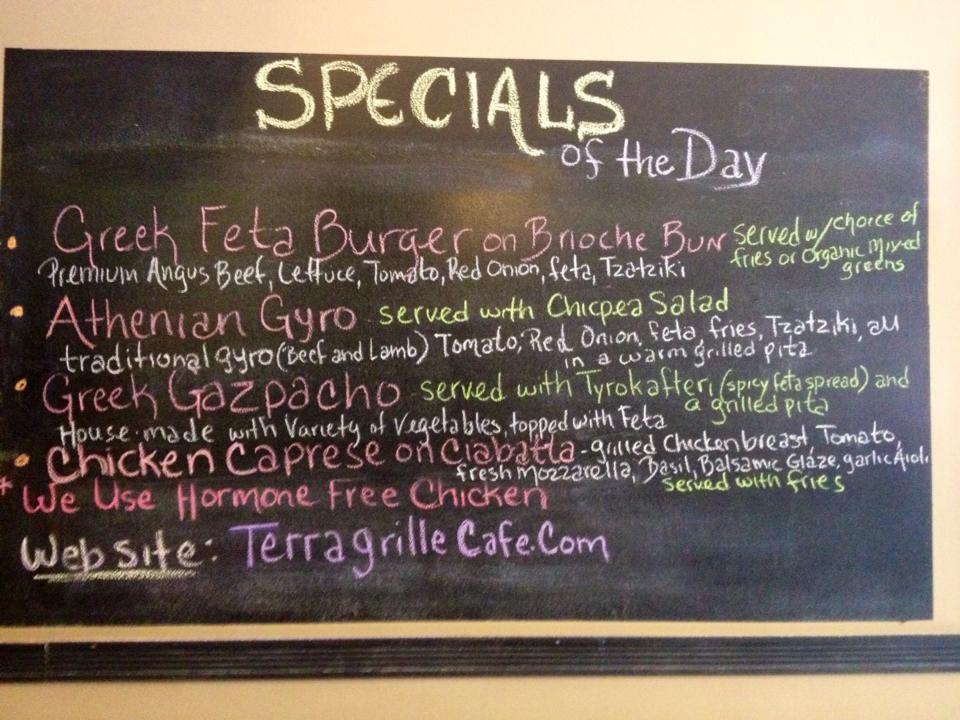 SPECIALS
of the Day
Greek Feta Burger on Brioche Bun served w/choice of
fries or Organic Mixed
greens
Premium Angus Beef, Lettuce, Tomato, Red Onion, feta, Tzatziki
Athenian Gyro served with Chicpea Salad
traditional gyro (Beef and Lamb) Tomato, Red Onion, feta, fries, Tzatziki, all
in a warm grilled pita
Greek Gazpacho served with Tyrokafteri (spicy feta spread) and
a grilled pita
House-made with Variety of Vegetables, topped with Feta
Chicken Caprese on Ciabatta - grilled Chicken breast Tomato,
fresh Mozzarella, Basil, Balsamic Glaze, garlic Aioli
served with fries
* We Use Hormone Free Chicken
Website: TerragrilleCafe.Com